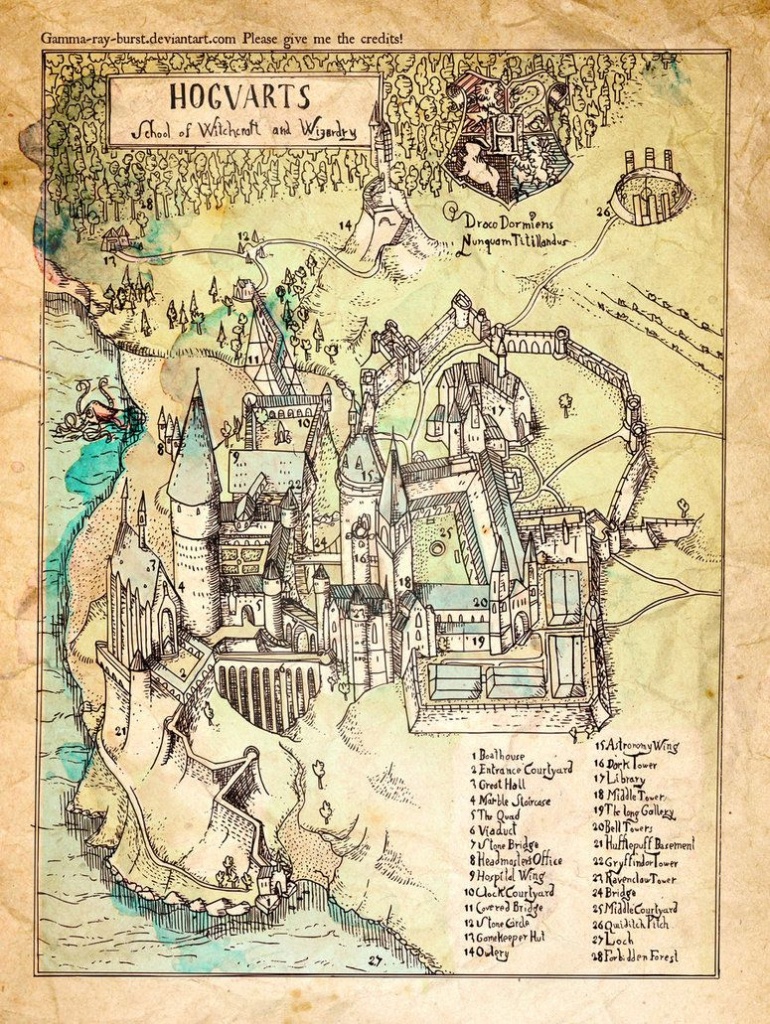 Gamma-ray-burst.deviantart.com Please give me the credits!
HOGVARTS
School of Witchcraft and Wizardry
H
Draco Dormiens
Nunquam Titillandus
28
14
26
13
12
11
10
8
9
17
15
22
25
24
16
3
4
18
5
20
19
2
21
27
1 Boathouse
2 Entrance Courtyard
3 Great Hall
4 Marble Staircase
5 The Quad
6 Viaduct
7 Stone Bridge
8 Headmasters Office
9 Hospital Wing
10 Clock Courtyard
11 Covered Bridge
12 Stone Circle
13 Gamekeeper Hut
14 Owlery
15 Astronomy Wing
16 Dark Tower
17 Library
18 Middle Tower
19 The long Gallery
20 Bell Towers
21 Hufflepuff Basement
22 Gryffindor Tower
23 Ravenclaw Tower
24 Bridge
25 Middle Courtyard
26 Quiditch Pitch
27 Loch
28 Forbidden Forest